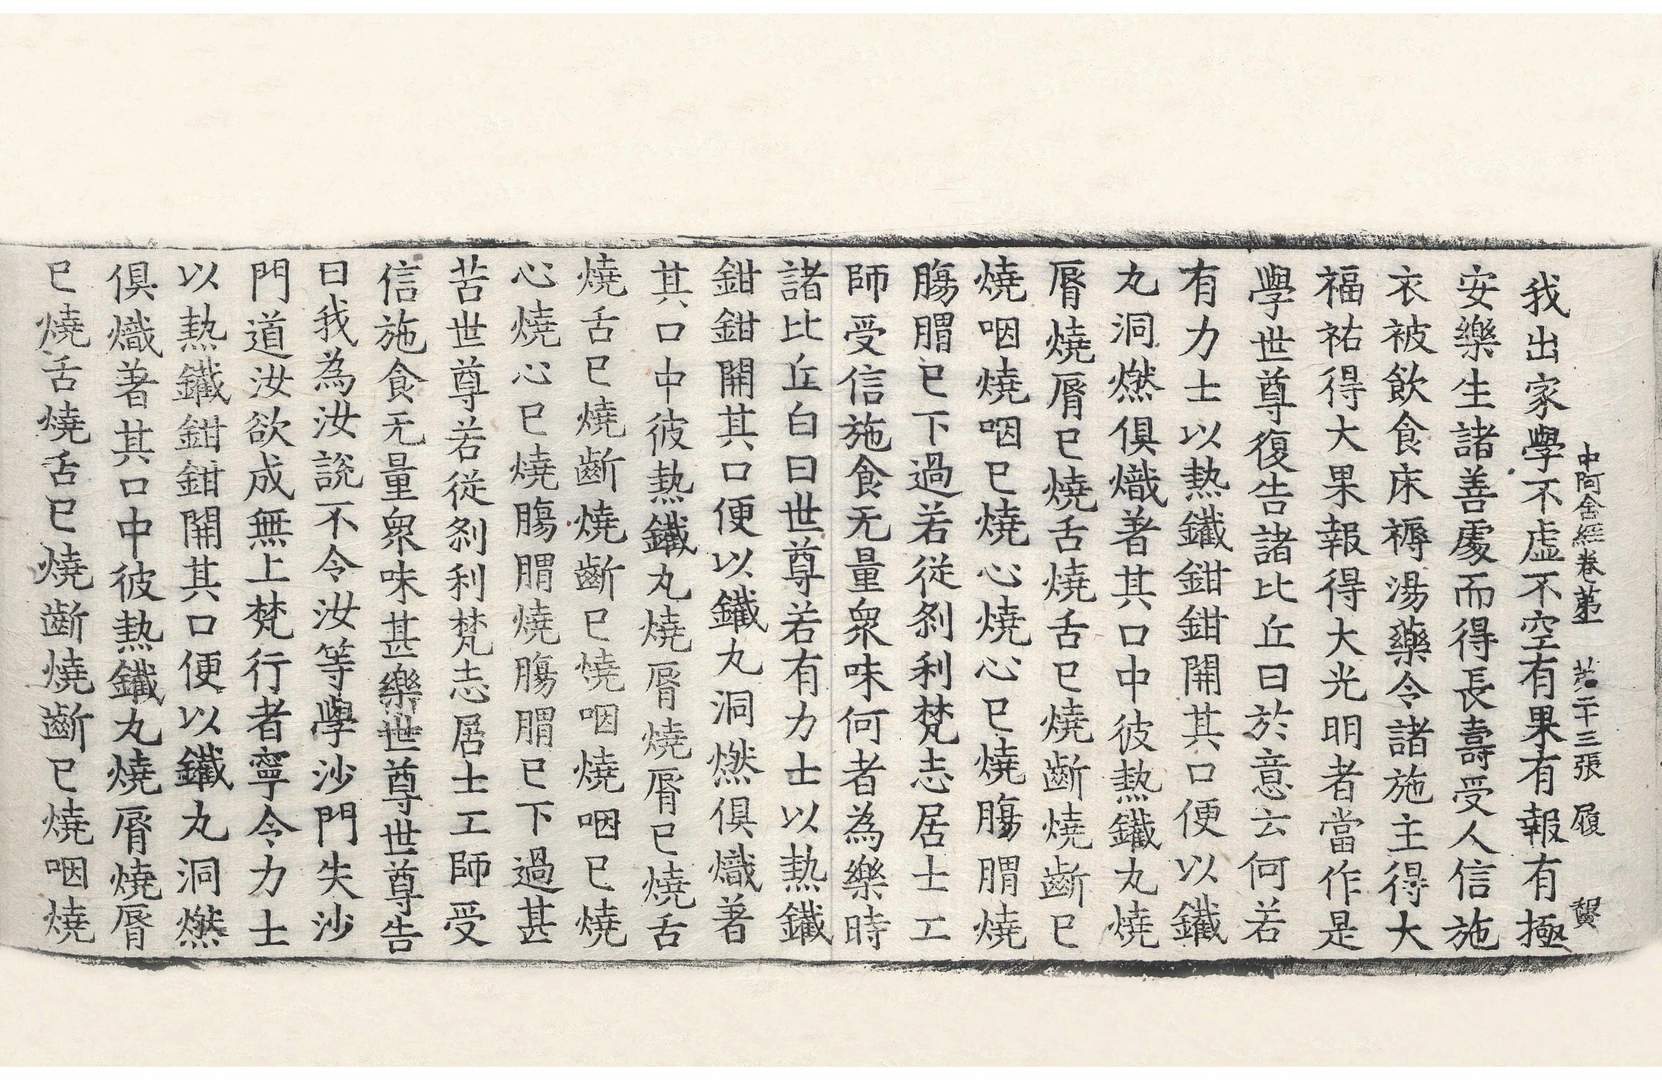 中阿含經卷苐一 苐二十三張 履
我出家學不虛不空有果有報有極
安樂生諸善處而得長壽受人信施
衣被飲食床褥湯藥令諸施主得大
福祐得大果報得大光明者當作是
學世尊復告諸比丘曰於意云何若
有力士以熱鐵鉗鉗開其口便以鐵
丸洞燃俱熾著其口中彼熱鐵丸燒
脣燒脣已燒舌燒舌已燒齗燒齗已
燒咽燒咽已燒心燒心已燒腸胃燒
腸胃已下過若從剎利梵志居士工
師受信施食无量眾味何者為樂時
諸比丘白曰世尊若有力士以熱鐵
鉗鉗開其口便以鐵丸洞燃俱熾著
其口中彼熱鐵丸燒脣燒脣已燒舌
燒舌已燒齗燒齗已燒咽燒咽已燒
心燒心已燒腸胃燒腸胃已下過甚
苦世尊若從剎利梵志居士工師受
信施食无量眾味甚樂世尊世尊告
曰我為汝說不令汝等學沙門失沙
門道汝欲成無上梵行者寧令力士
以熱鐵鉗鉗開其口便以鐵丸洞燃
俱熾著其口中彼熱鐵丸燒脣燒脣
已燒舌燒舌已燒齗燒齗已燒咽燒